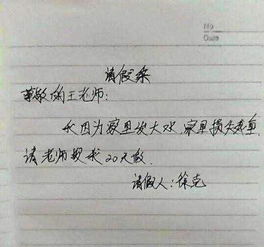 No
Date
请假条
尊敬的王老师:
我因为家里发大水,家里损失惨重
请老师批我20天假
请假人:徐克